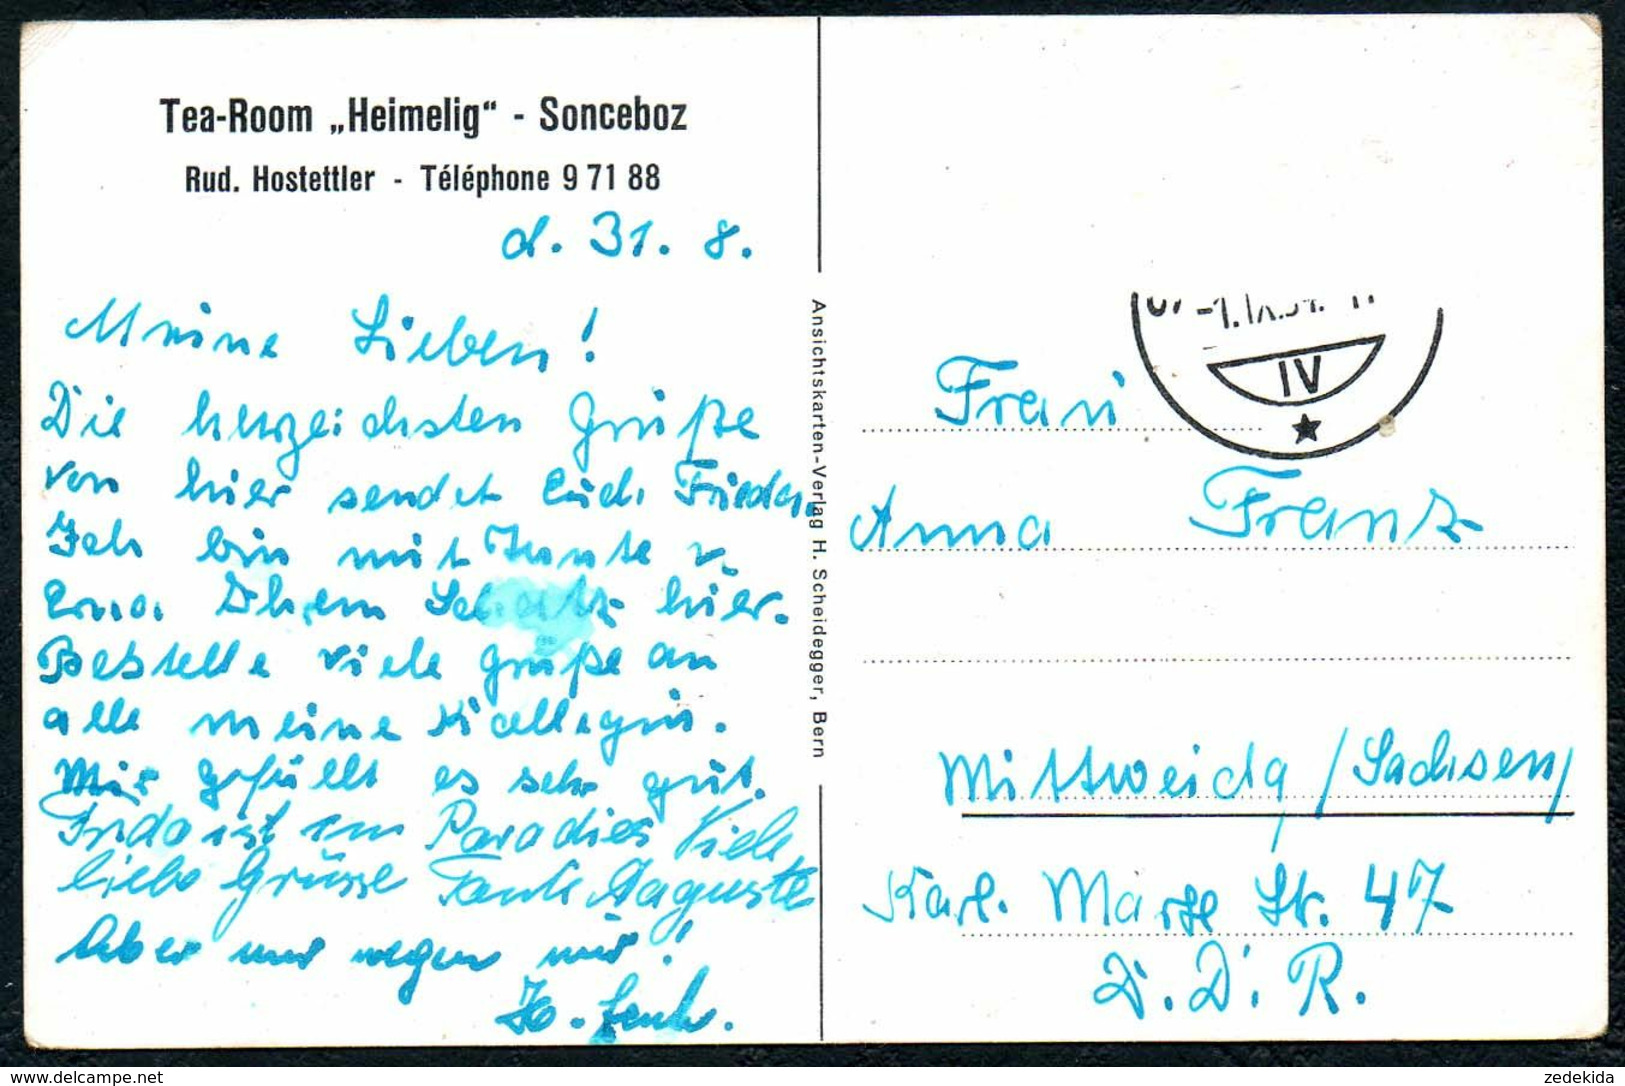 Tea-Room „Heimelig“ - Sonceboz
Rud. Hostettler - Téléphone 9 71 88
d. 31. 8.
Meine Lieben!
Die herzlichsten Grüße
von hier sendet Euch Frieda.
Ich bin mit Tante u.
Erna, Ihrem Schatz hier.
Bestelle viele Grüße an
alle meine Kollegin.
Mir gefällt es sehr gut.
Frida ist im Paradies Viele
liebe Grüsse Tante Auguste
Aber nur wegen mir!
Ansichtskarten-Verlag H. Scheidegger, Bern
IV
Frau
Anna Franz
Mittweida / Sachsen /
Karl. Marx Str. 47
D. D. R.
www.delcampe.net
zedekida